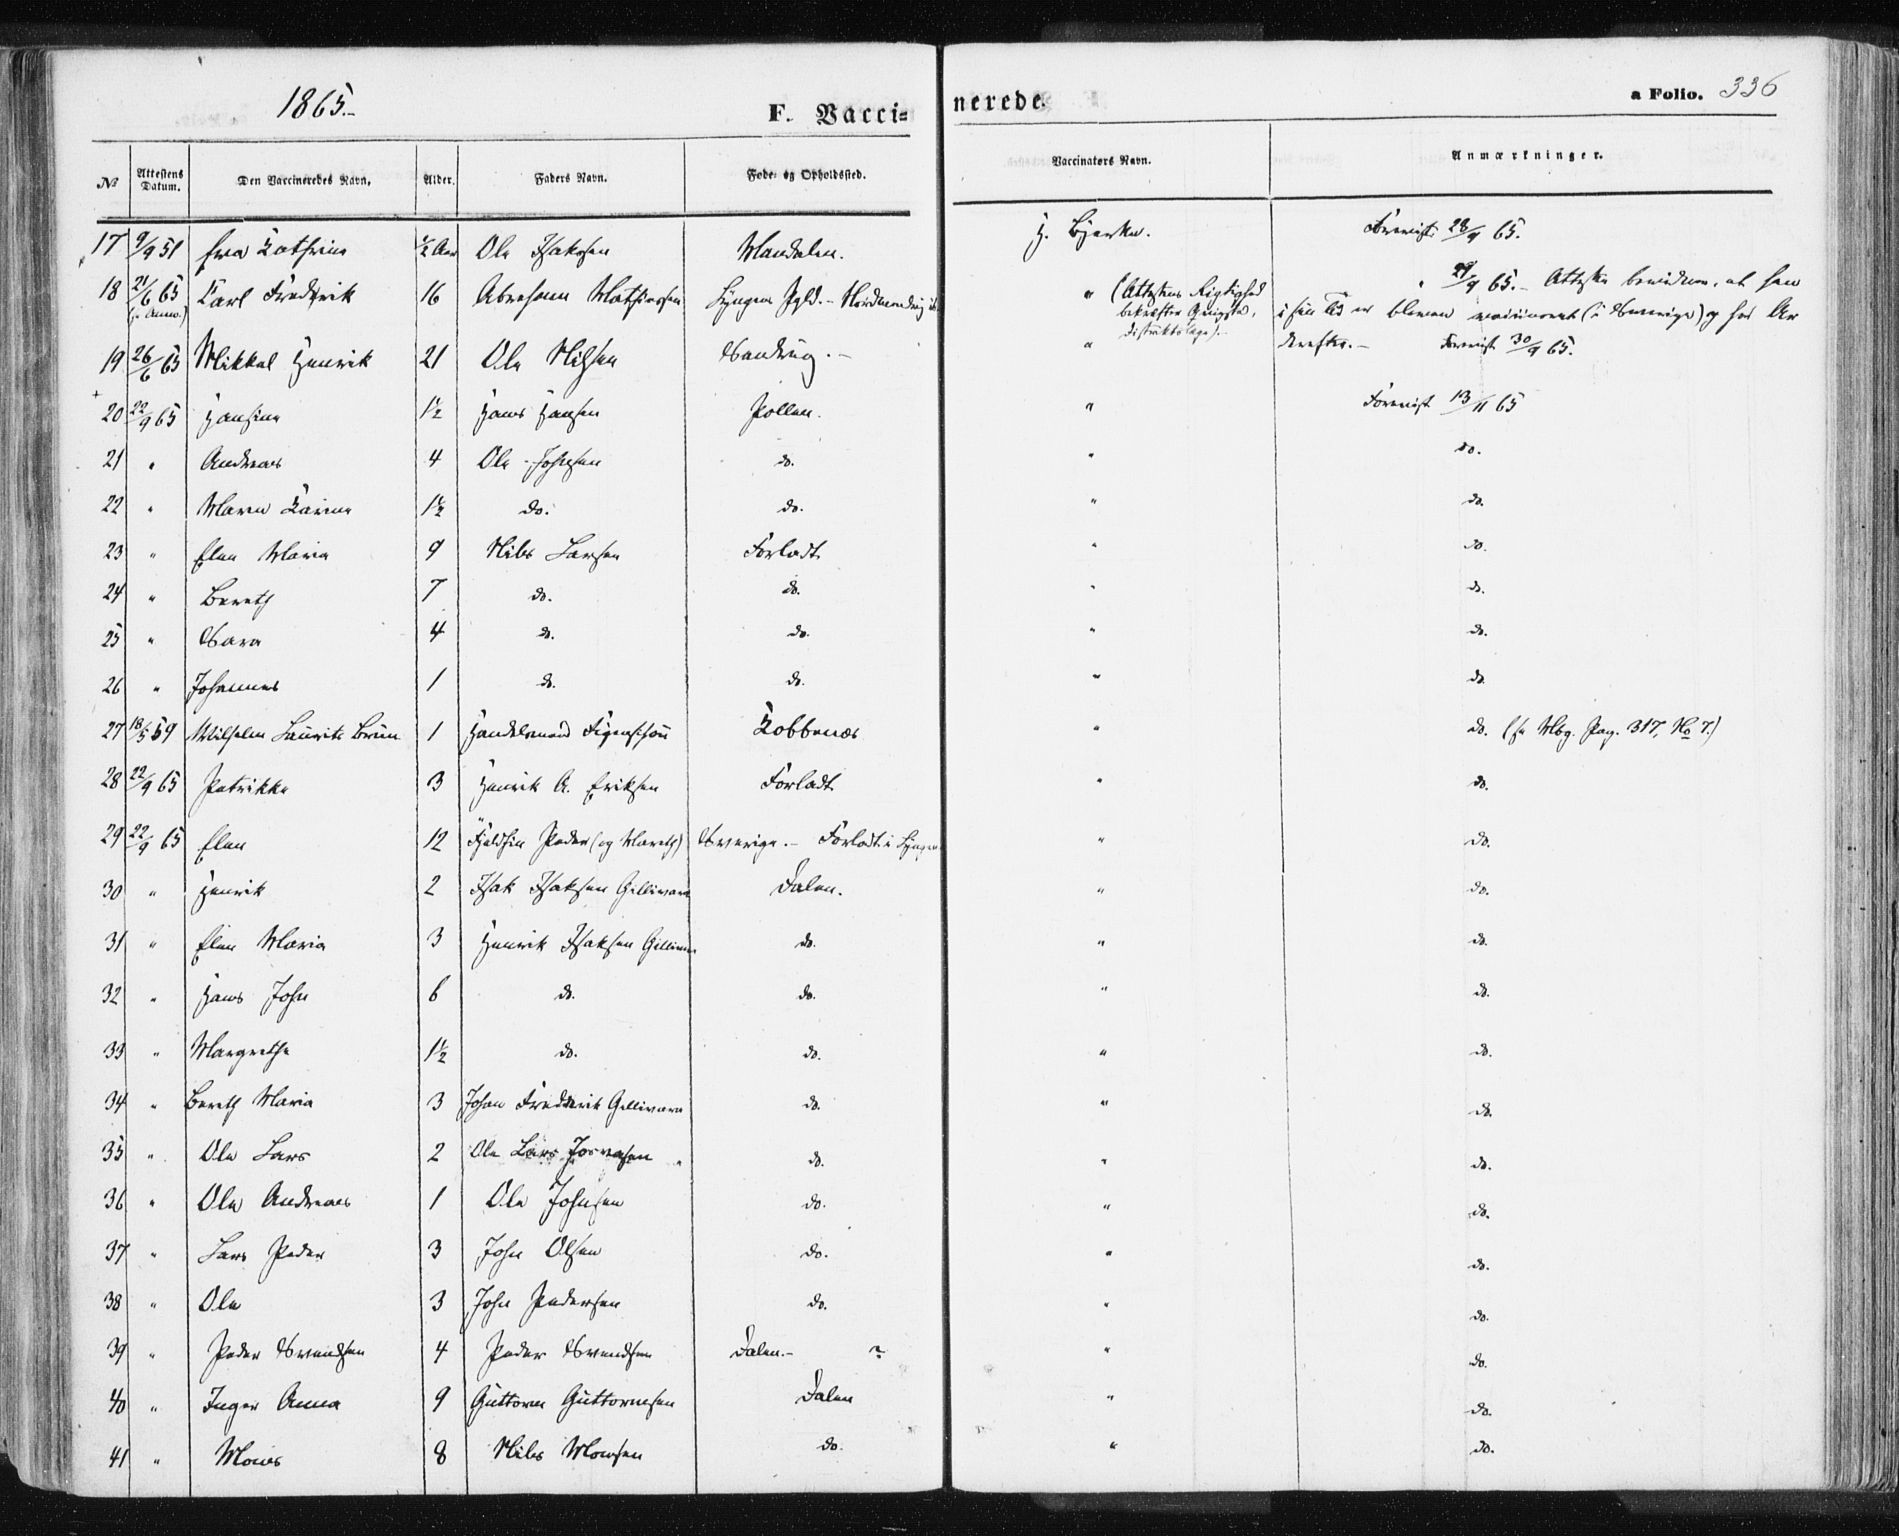 1865.-
F. Vacci= nerede.
a Folio. 336
No Attestens Datum. Den Vaccineredes Navn. Alder. Faders Navn. Føde- og Opholdssted. Vaccinators Navn. Anmærkninger.
17 9/9 51 Eva Cathrine 1/2 Aar Ole Isaksen Mandalen. H. Bjerke. Forevist 28/9 65.
18 21/6 65 Carl Frederik 16 Abraham Mathiassen Lyngens Pgld. - " (Attestens Rigtighed bekræftes " 29/9 65. - Attesten bevidner, at han
i sin Tid er bleven vaccineret (i Sverrige) og har Ar
derefter. -
19 26/6 65 Mikkel Henrik 21 Ole Nilsen Sandvig. - " Forevist 30/9 65.
20 22/9 65 Hansine 1 1/2 Hans Hansen Pollen. " Forevist 13/11 65
21 " Andreas 4 Ole Johnsen do. " do.
22 " Maren Karine 1 1/2 do. do. " do.
23 " Elen Maria 9 Nils Larsen Forladt " do.
24 " Bereth 7 do. do. " do.
25 " Sara 4 do. do. " do.
26 " Johannes 1 do. do. " do.
27 18/5 59 Wilhelm Laurits Brun 1 Handelsmand Figenschou Kobbenes " do. (se Mbg. Pag. 317, No 7.)
28 22/9 65 Petrikke 3 Henrik A. Eriksen Forladt " do.
29 22/9 65 Elen 12 Fjeldfin Peder (og Mareth) Sverige. - Forladt i Lyngen " do.
30 " Henrik 2 Isak Isaksen Gellivara Dalen. " do.
31 " Elen Maria 3 Henrik Isaksen Gellivara do. " do.
32 " Hans John 6 do. do. " do.
33 " Margrethe 1 1/2 do. do. " do.
34 " Bereth Maria 3 Johan Frederik Gellivara do. " do.
35 " Ole Lars 2 Ole Lars Josvasen " do. " do.
36 " Ole Andreas 1 Ole Johnsen do. " do.
37 " Lars Peder 3 John Olsen do. " do.
38 " Ole 3 John Pedersen do. " do.
39 " Peder Svendsen 4 Peder Svendsen Dalen. - ? " do.
40 " Inger Anna 9 Guttorm Guttormsen Dalen " do.
41 " Mons 8 Nils Monsen do. " do.